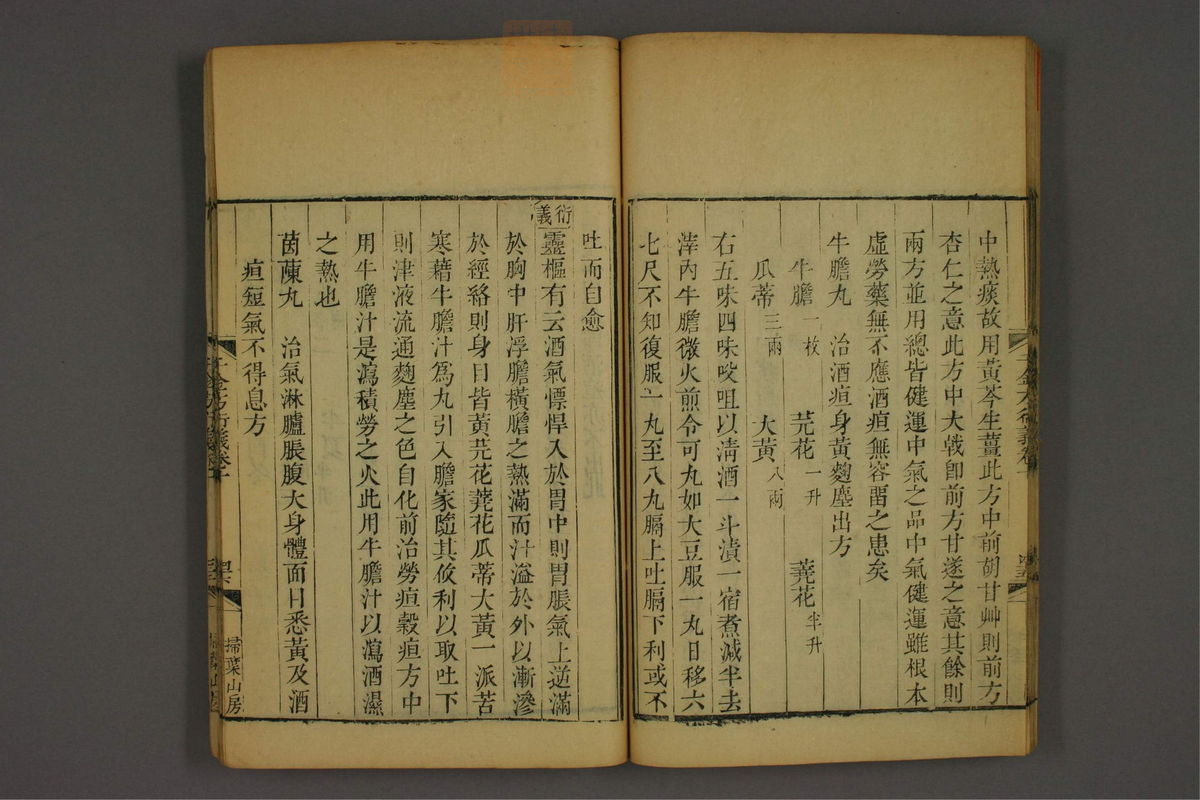 中熱痰故用黃芩生薑此方中前胡甘艸則前方
杏仁之意此方中大戟卽前方甘遂之意其餘則
兩方並用總皆健運中氣之品中氣健運雖根本
虛勞藥無不應酒疸無容畱之患矣
牛膽丸　治酒疸身黃麴塵出方
牛膽一枚　芫花一升　蕘花半升
瓜蒂三兩　大黃八兩
右五味四味㕮咀以淸酒一斗漬一宿煮減半去
滓內牛膽微火煎令可丸如大豆服一丸日移六
七尺不知復服一丸至八丸膈上吐膈下利或不
吐而自愈
衍義靈樞有云酒氣慓悍入於胃中則胃脹氣上逆滿
於胸中肝浮膽橫膽之熱滿而汁溢於外以漸滲
於經絡則身目皆黃芫花蕘花瓜蒂大黃一派苦
寒藉牛膽汁爲丸引入膽家隨其攸利以取吐下
則津液流通麴塵之色自化前治勞疸穀疸方中
用牛膽汁是瀉積勞之火此用牛膽汁以瀉酒濕
之熱也
茵蔯丸　治氣淋臚脹腹大身體面目悉黃及酒
疸短氣不得息方
千金方衍義卷十
掃葉山房